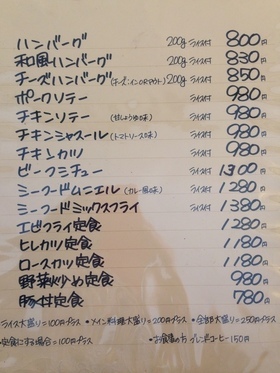 ハンバーグ 200g ライス付 800円
和風ハンバーグ 200g ライス付 830円
チーズハンバーグ(チーズ:インORアウト) 200g ライス付 850円
ポークソテー ライス付 980円
チキンソテー ライス付 980円
チキンシャスール(トマトソース味) ライス付 980円
チキンカツ ライス付 980円
ビーフシチュー ライス付 1300円
シーフードムニエル(カレー風味) ライス付 1280円
シーフードミックスフライ ライス付 1380円
エビフライ定食 1280円
ヒレカツ定食 1180円
ロースカツ定食 1180円
野菜炒め定食 980円
豚丼定食 780円
ライス大盛り=100円プラス ・メイン料理大盛り=200円プラス ・全部大盛り=250円プラス
定食にする場合=100円プラス ・お食事の方 ブレンドコーヒー150円